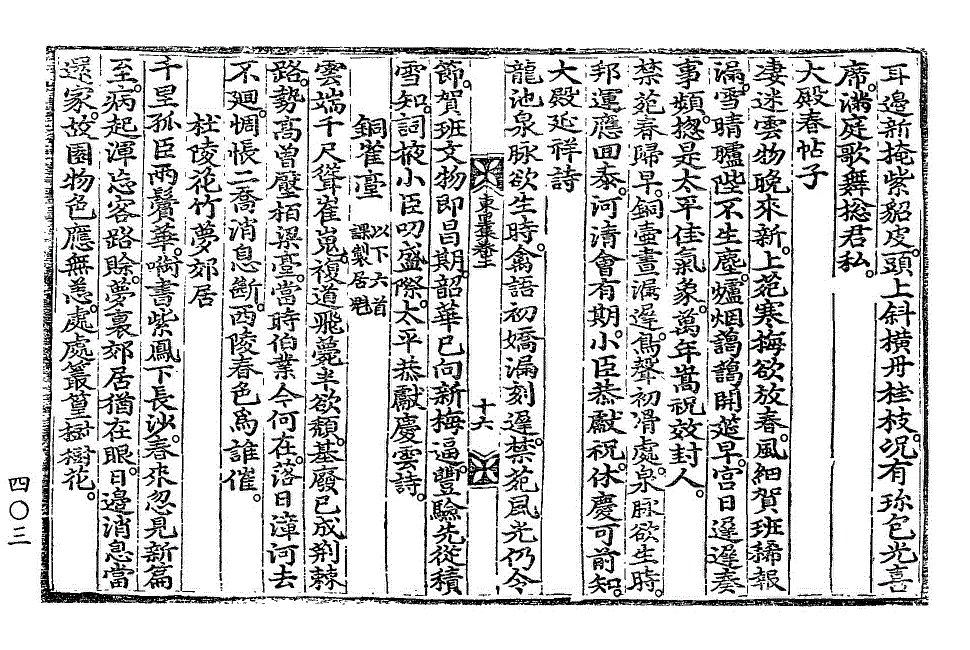 耳邊新掩紫貂皮。頭上斜橫丹桂枝。況有珎包光喜
席。滿庭歌舞捴君私。
大殿春帖子
凄迷雲物晩來新。上苑寒梅欲放春。風細賀班稀報
漏。雪晴臚陛不生塵。爐烟藹藹開筵早。宮日遲遲奏
事頻。捴是太平佳氣象。萬年嵩祝效封人。
禁苑春歸早。銅壺晝漏遲。鳥聲初滑處。泉脉欲生時。
邦運應回泰。河淸會有期。小臣恭獻祝。休慶可前知。
大殿延祥詩
龍池泉脉欲生時。禽語初嬌漏刻遲。禁苑風光仍令
十六
節。賀班文物即昌期。韶華已向新梅逼。豐驗先從積
雪知。詞掖小臣叨盛際。太平恭獻慶雲詩。
銅雀臺 以下六首課製居魁
雲端千尺聳崔嵬。複道飛甍半欲頹。基廢已成荆棘
路。勢高曾壓栢梁臺。當時伯業今何在。落日漳河去
不廻。惆悵二喬消息斷。西陵春色爲誰催。
杜陵花竹夢郊居
千里孤臣兩鬢華。啣書紫鳳下長沙。春來忽見新篇
至。病起渾忘客路賖。夢裏郊居猶在眼。日邊消息當
還家。故園物色應無恙。處處叢篁樹樹花。
四〇三